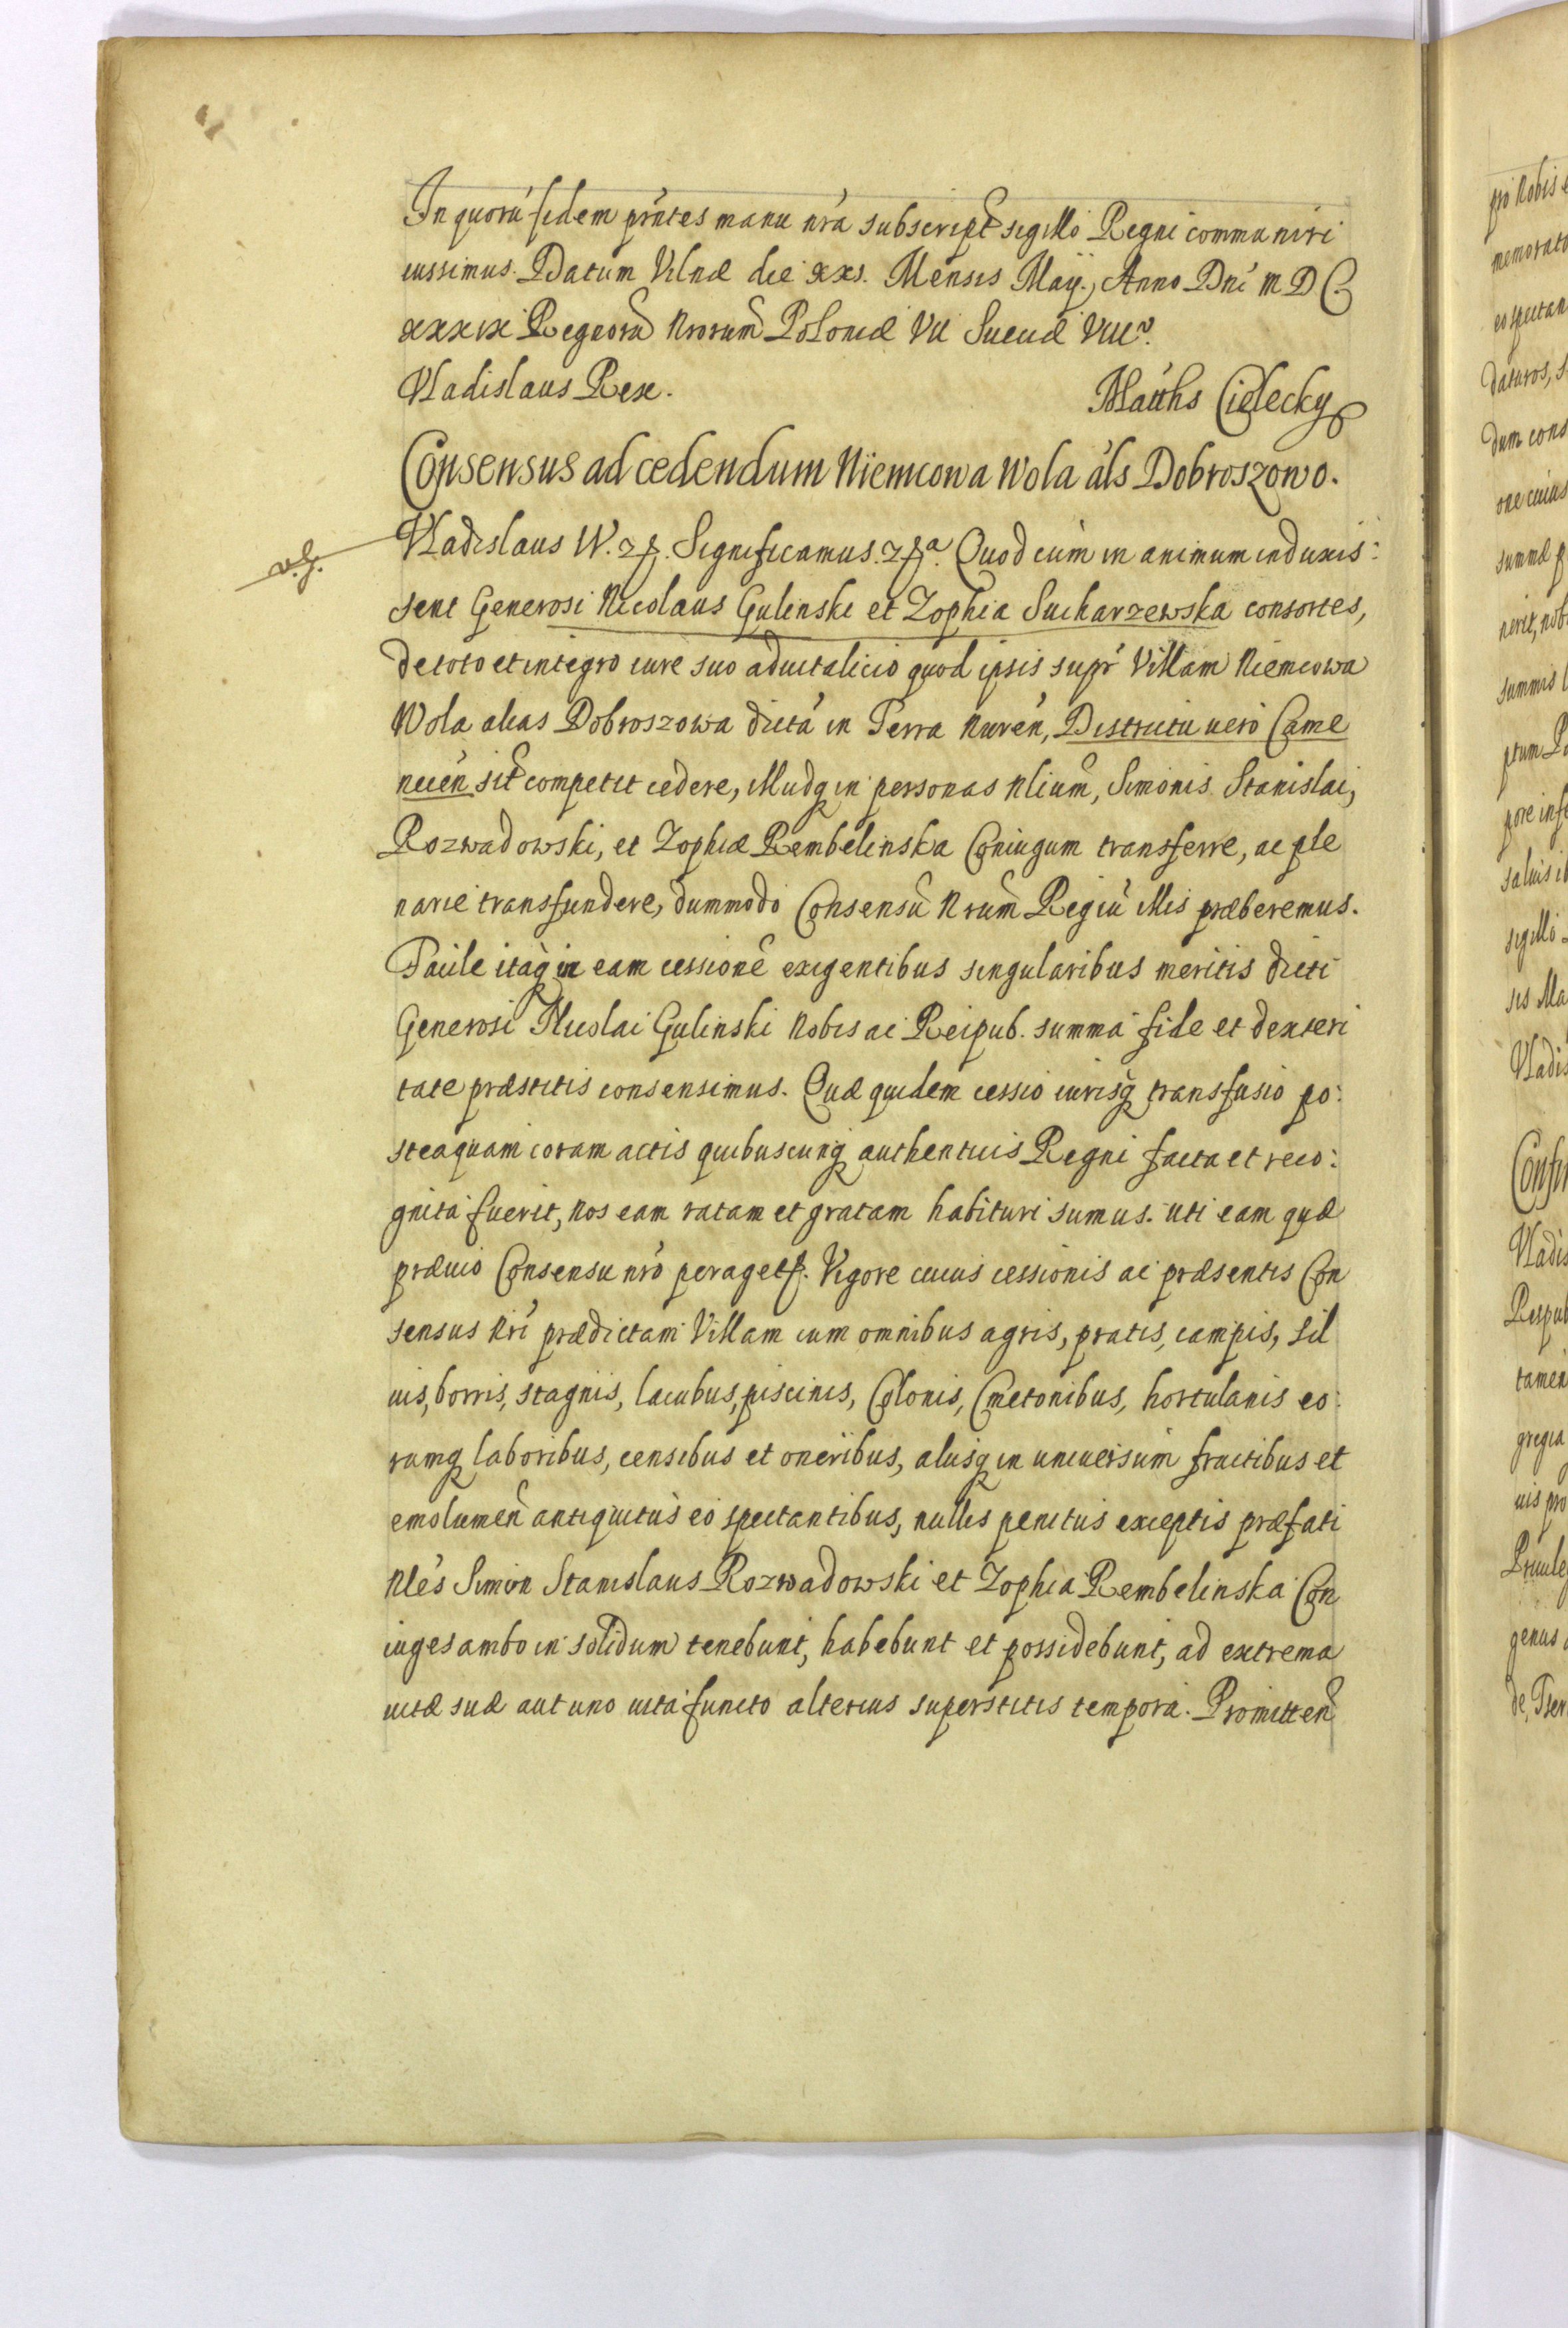 In quorū fidem prńtes manu nrá subscript sigillo Regni communiri
iussimus. Datum Vilnæ die xxi. Mensis Maij., Anno Dni M D C
xxxix Regnorū Nrorum Poloniæ VII Sueciæ VIII°.
Vladislaus Rex. Matths Cielecky
Consensus ad cedendum Niemcowa Wola áls Dobroszowo.
v.g.
Vladislaus IV. etc. Significamus. etc a. Quod cum in animum induxis:
sent Generosi Nicolaus Gulinski et Zophia Sucharzewska consortes,
de toto et integro iure suo aduitalicio quod ipsis supr Villam Niemcowa
Wola alias Dobroszowa dictá in Terra Nurén, Districtu uero Came
necén sit competit cedere, illudq in personas Nlium, Simonis Stanislai,
Rozwadowski, et Zophiæ Rembelinska Coniugum transferre, ac ple
narie transfundere, dummodo Consensū Nrum Regiū illis præberemus.
Facile itaq in eam cessionē exigentibus singularibus meritis dicti
Generosi Nicolai Gulinski Nobis ac Reipub. summa fide et dexteri
tate præstitis consensimus. Quæ quidem cessio iurisq transfusio po:
steaquam coram actis quibuscunq authenticis Regni facta et reco:
gnita fuerit, Nos eam ratam et gratam habituri sumus. uti eam quæ
præuio Consensu nró peragetr. Vigore cuius cessionis ac præsentis Con
sensus Nri prædictam Villam cum omnibus agris, pratis, campis, sil
uis, borris, stagnis, lacubus, piscinis, Colonis, Cmetonibus, hortulanis eo:
rumq laboribus, censibus et oneribus, aliisq in uniuersum fructibus et
emolumen antiquitus eo spectantibus, nullis penitus exceptis præfati
Nlés Simon Stanislaus Rozwadowski et Zophia Rembelinska Con
iuges ambo in solidum tenebunt, habebunt et possidebunt, ad extrema
uitæ suæ aut uno uita functo alterius superstitis tempora. Promitten
pro Nobis
memorato
eo spectan
daturos, s
dum cons
one cuius
summæ p
nerit, nob
summis
ptum
pore inf
saluis
sigillo
sis Ma
Vladis
Confir
Vladis
Respub
tamen
gregia
uis pro
Priuile
genus
de, Tzen